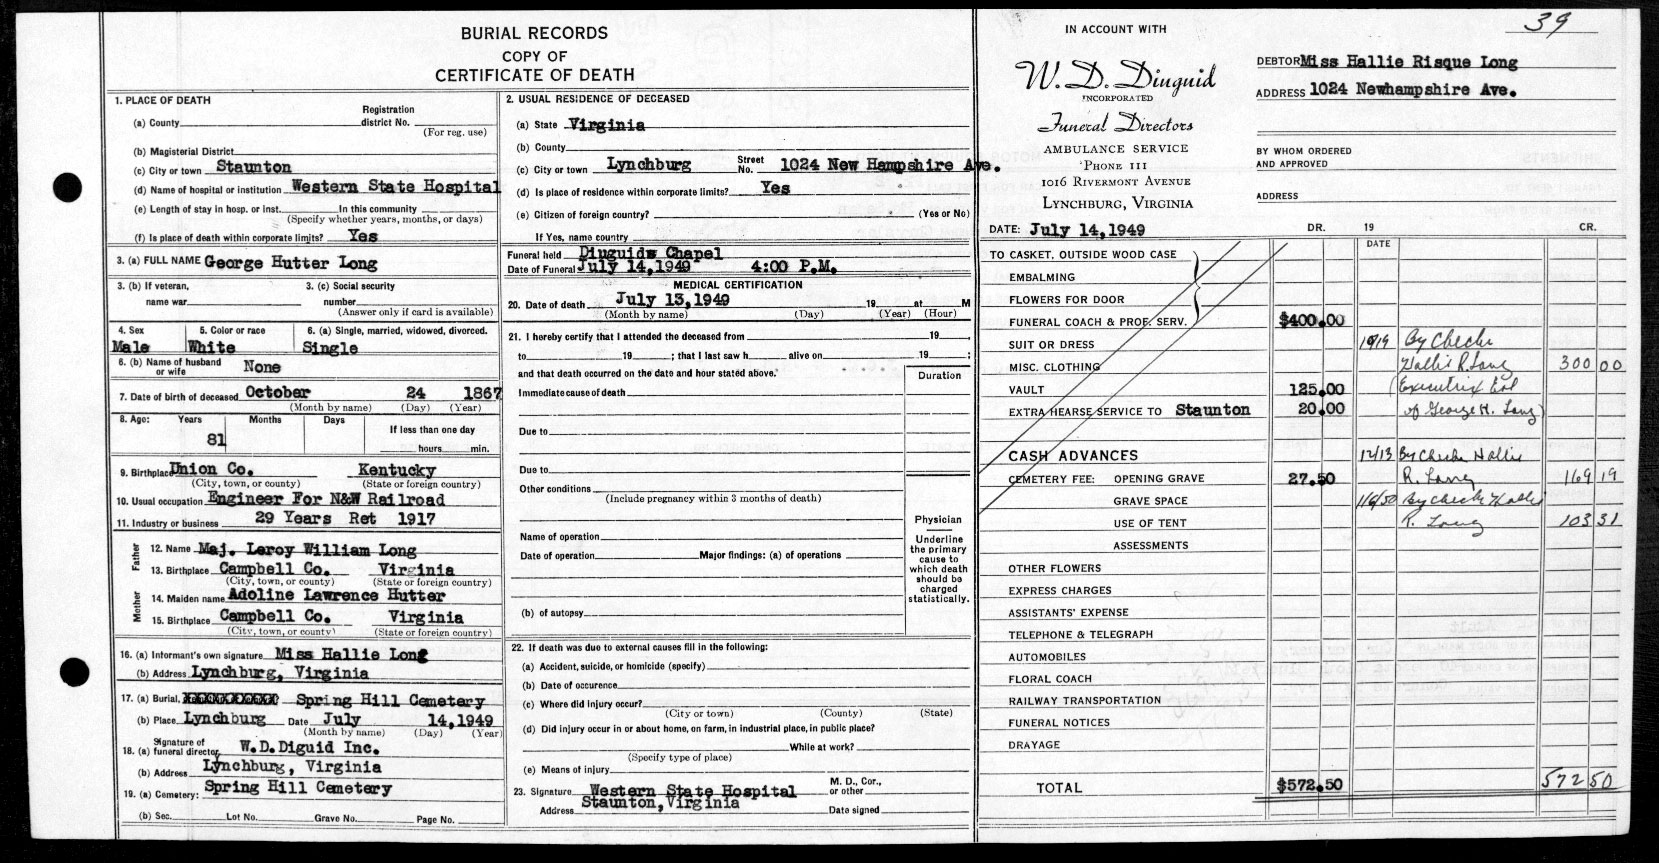 BURIAL RECORDS
COPY OF
CERTIFICATE OF DEATH
1. PLACE OF DEATH
(a) County Registration district No.
(For reg. use)
(b) Magisterial District
(c) City or town Staunton
(d) Name of hospital or institution Western State Hospital
(e) Length of stay in hosp. or inst. In this community
(Specify whether years, months, or days)
(f) Is place of death within corporate limits? Yes
3. (a) FULL NAME George Hutter Long
3. (b) If veteran, 3. (c) Social security
name war number
(Answer only if card is available)
4. Sex 5. Color or race 6. (a) Single, married, widowed, divorced.
Male White Single
6. (b) Name of husband or wife None
7. Date of birth of deceased October 24 1867
(Month by name) (Day) (Year)
8. Age: Years Months Days If less than one day
81 hours min.
9. Birthplace Union Co. Kentucky
(City, town, or county) (State or foreign country)
10. Usual occupation Engineer For N&W Railroad
11. Industry or business 29 Years Ret 1917
Father
12. Name Maj. Leroy William Long
13. Birthplace Campbell Co. Virginia
(City, town, or county) (State or foreign country)
Mother
14. Maiden name Adoline Lawrence Hutter
15. Birthplace Campbell Co. Virginia
(City, town, or county) (State or foreign country)
16. (a) Informant's own signature Miss Hallie Long
(b) Address Lynchburg, Virginia
17. (a) Burial, Spring Hill Cemetery
(b) Place Lynchburg Date July 14,1949
(Month by name) (Day) (Year)
18. (a) Signature of funeral director W.D.Diguid Inc.
(b) Address Lynchburg, Virginia
19. (a) Cemetery: Spring Hill Cemetery
(b) Sec. Lot No. Grave No. Page No.
2. USUAL RESIDENCE OF DECEASED
(a) State Virginia
(b) County
(c) City or town Lynchburg Street No. 1024 New Hampshire Ave.
(d) Is place of residence within corporate limits? Yes
(e) Citizen of foreign country? (Yes or No)
If Yes, name country
Funeral held Diuguids Chapel
Date of Funeral July 14,1949 4:00 P.M.
MEDICAL CERTIFICATION
20. Date of death July 13,1949 19 at M
(Month by name) (Day) (Year) (Hour)
21. I hereby certify that I attended the deceased from 19 ,
to 19 ; that I last saw h alive on 19 ;
and that death occurred on the date and hour stated above.
Duration
Immediate cause of death
Due to
Due to
Other conditions
(Include pregnancy within 3 months of death)
Physician
Underline the primary cause to which death should be charged statistically.
Name of operation
Date of operation Major findings: (a) of operations
(b) of autopsy
22. If death was due to external causes fill in the following:
(a) Accident, suicide, or homicide (specify)
(b) Date of occurence
(c) Where did injury occur?
(City or town) (County) (State)
(d) Did injury occur in or about home, on farm, in industrial place, in public place?
While at work?
(Specify type of place)
(e) Means of injury
23. Signature Western State Hospital M. D., Cor., or other
Address Staunton,Virginia Date signed
39
IN ACCOUNT WITH
W. D. Diuguid
INCORPORATED
Funeral Directors
AMBULANCE SERVICE
PHONE 111
1016 RIVERMONT AVENUE
LYNCHBURG, VIRGINIA
DEBTOR Miss Hallie Risque Long
ADDRESS 1024 Newhampshire Ave.
BY WHOM ORDERED
AND APPROVED
ADDRESS
DATE: July 14,1949 DR. 19 CR.
DATE
TO CASKET, OUTSIDE WOOD CASE
EMBALMING
FLOWERS FOR DOOR
FUNERAL COACH & PROF. SERV. $400.00
SUIT OR DRESS 10/19 By Check
MISC. CLOTHING Hallie R. Long 300 00
VAULT 125.00 (Executrix Est
EXTRA HEARSE SERVICE TO Staunton 20.00 of George H. Long)
CASH ADVANCES 12/13 By Check Hallie
CEMETERY FEE: OPENING GRAVE 27.50 R. Long 169 19
GRAVE SPACE 1/6/50 By Check Hallie
USE OF TENT R. Long 103 31
ASSESSMENTS
OTHER FLOWERS
EXPRESS CHARGES
ASSISTANTS' EXPENSE
TELEPHONE & TELEGRAPH
AUTOMOBILES
FLORAL COACH
RAILWAY TRANSPORTATION
FUNERAL NOTICES
DRAYAGE
TOTAL $572.50 572 50